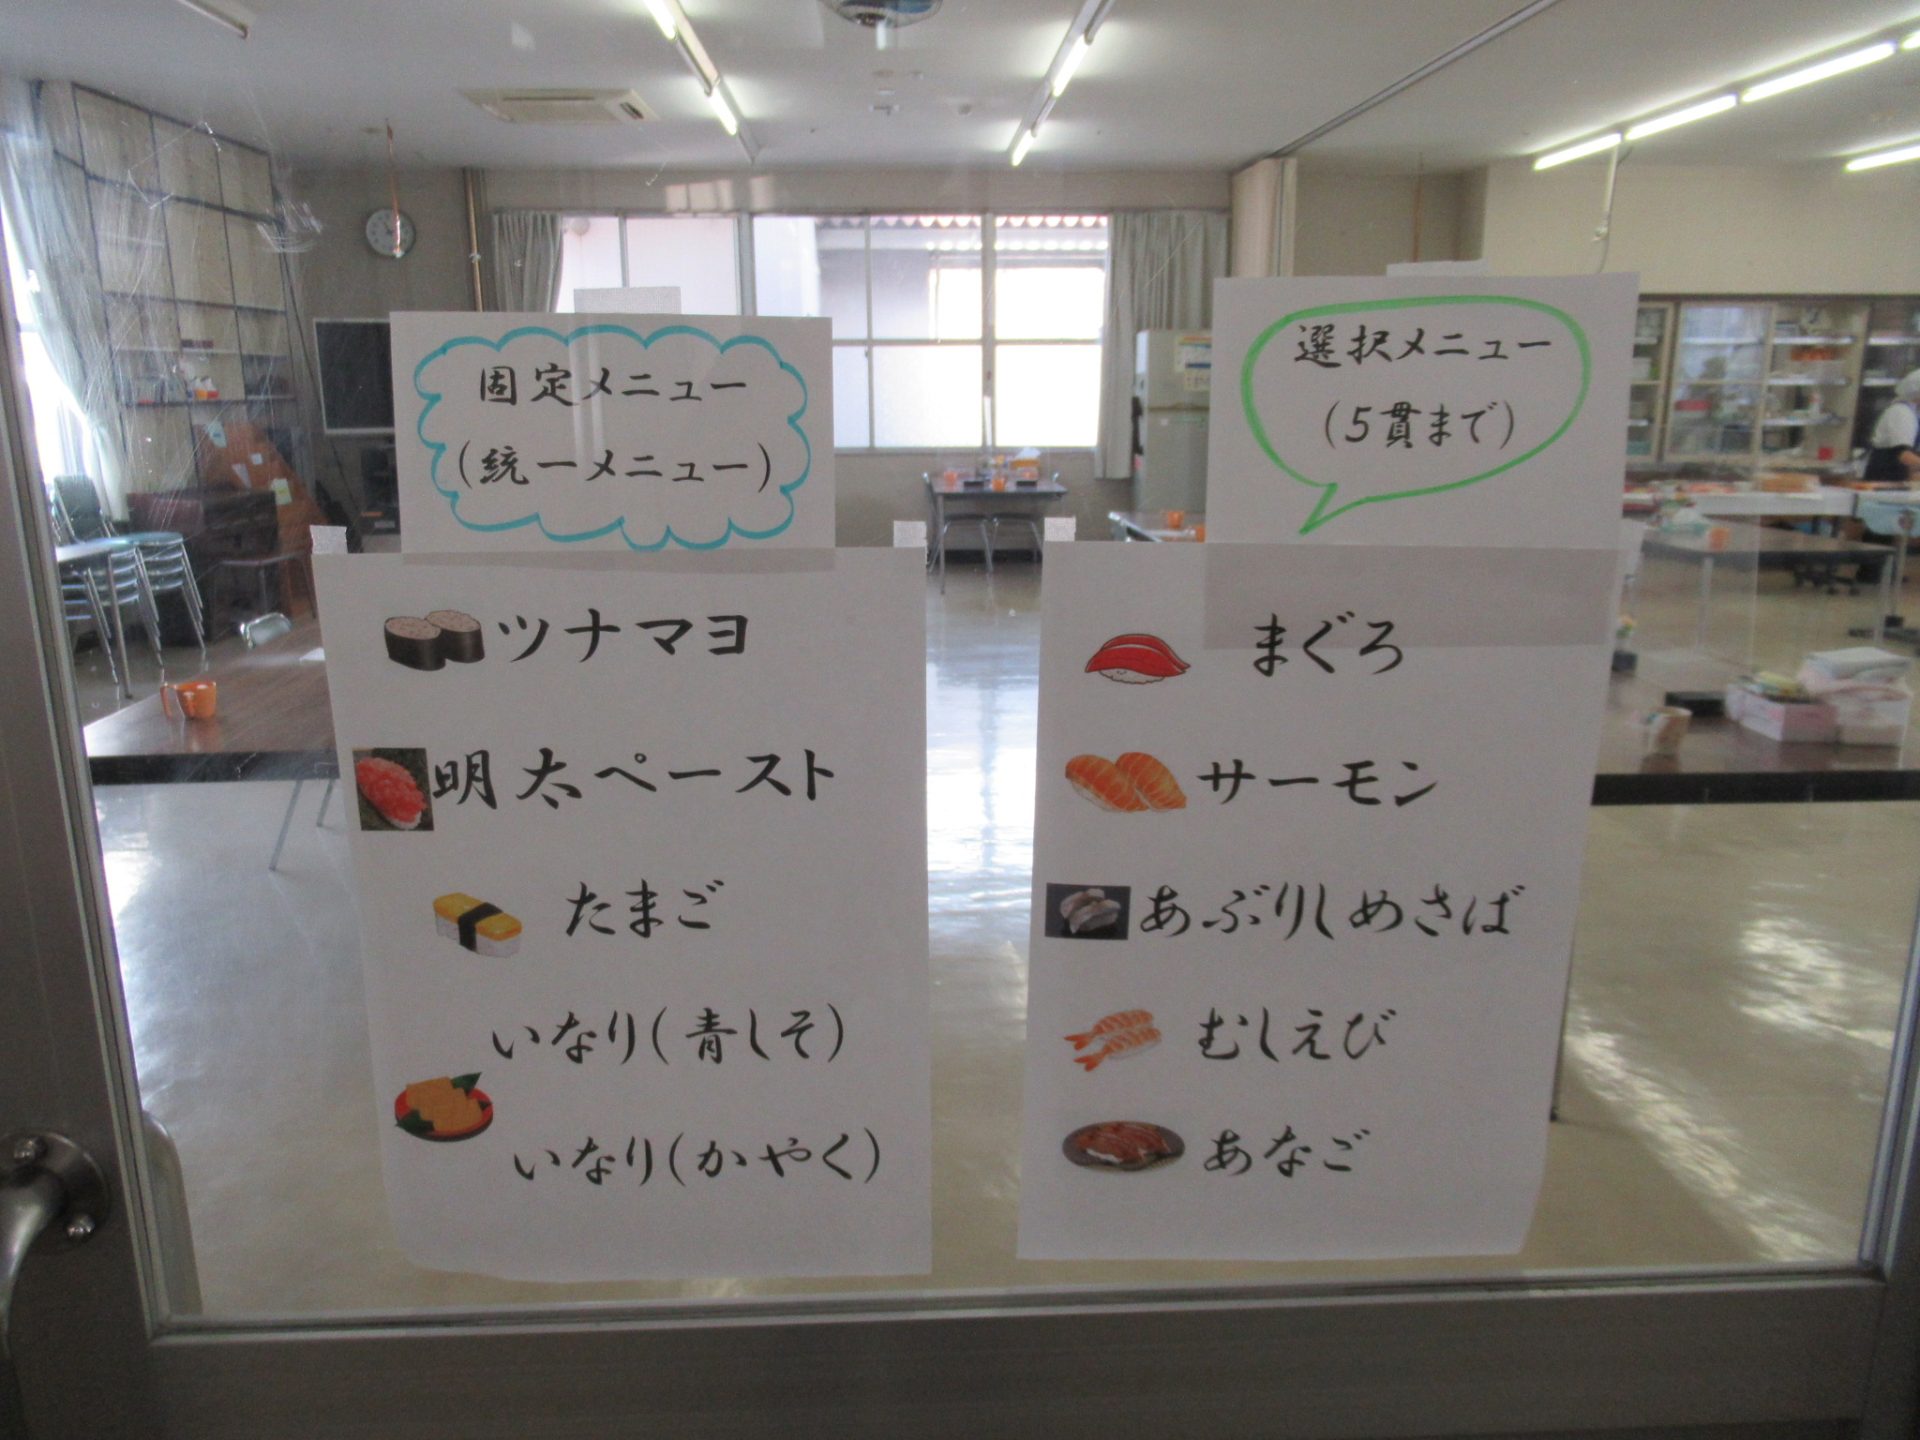 固定メニュー
(統一メニュー)
ツナマヨ
明太ペースト
たまご
いなり(青しそ)
いなり(かやく)
選択メニュー
(5貫まで)
まぐろ
サーモン
あぶりしめさば
むしえび
あなご